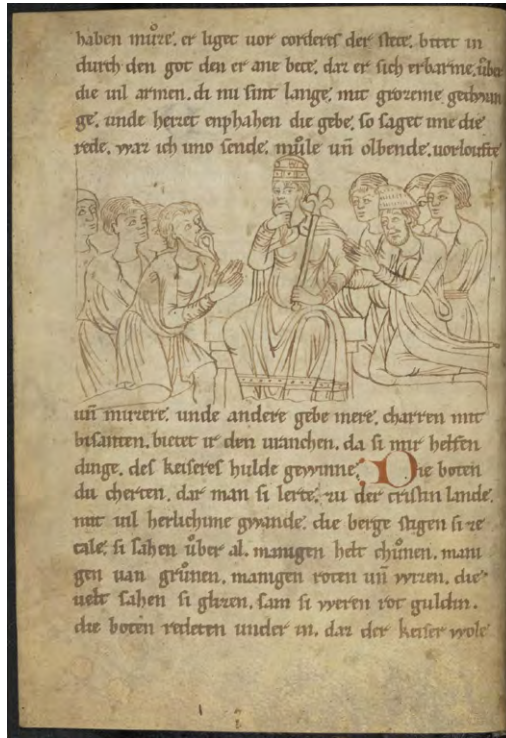 haben můze. er liget vor corderes der stete. bitet in
durch den got den er ane bete. daz er sich erbarme. ůber
die uil armen. di nu sint lange. mit grozeme gedwan
ge. unde heizet enphahen die gebe. so saget ime die
rede. waz ich imo sende. můle un̄ olbende. uorloufte
un̄ muzere. unde andere gebe mere. charren mit
bisanten. bietet ir den uranchen. da si mir helfen
dinge. des keiseres hulde gewinne. Die boten
du cherten. dar man si lerte. zu der cristin lande.
mit uil herlichime gwande. die berge stigen si ze
tale. si sahen ůber al. manigen helt chůnen. mani
gen uan grůnen. manigen roten un̄ wizen. die
uelt sahen si glizen. sam si weren rot guldin.
die boten redeten under in. daz der keiser wole